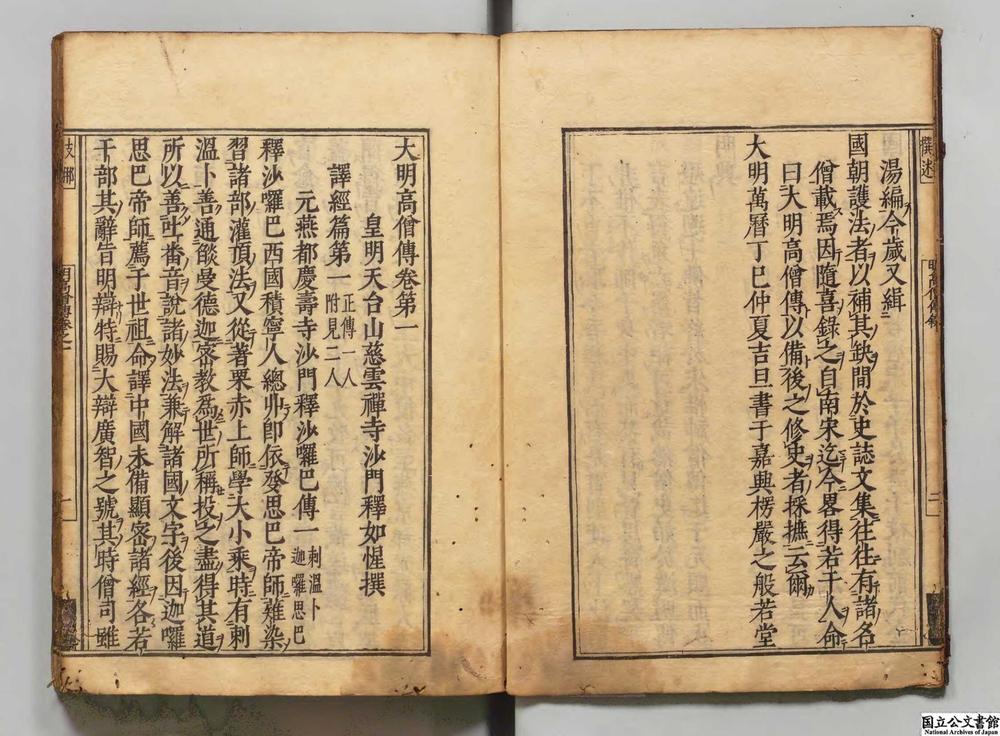 湯編今歲又緝
國朝護法者以補其缺間於史誌文集往往有諸名
僧載焉因隨喜錄之自南宋迄今畧得若干人命
曰大明高僧傳以備後之修史者採摭云爾
大明萬曆丁巳仲夏吉旦書于嘉興楞嚴之般若堂
撰述
二
大明高僧傳卷第一
皇明天台山慈雲禪寺沙門釋如惺撰
譯經篇第一
正傳一人
附見二人
元燕都慶壽寺沙門釋沙囉巴傳一
刺溫卜
迦囉思巴
釋沙囉巴西國積寧人總丱卽依癹思巴帝師薙染
習諸部灌頂法又從著栗赤上師學大小乘時有刺
溫卜善通燄曼德迦密教爲世所稱投之盡得其道
所以善吐番音說諸妙法兼解諸國文字後因迦囉
思巴帝師薦于世祖命譯中國未備顯密諸經各若
干部其辭旨明辯特賜大辯廣智之號其時僧司雖
明高僧傳卷之一
一
国立公文書館
National Archives of Japan